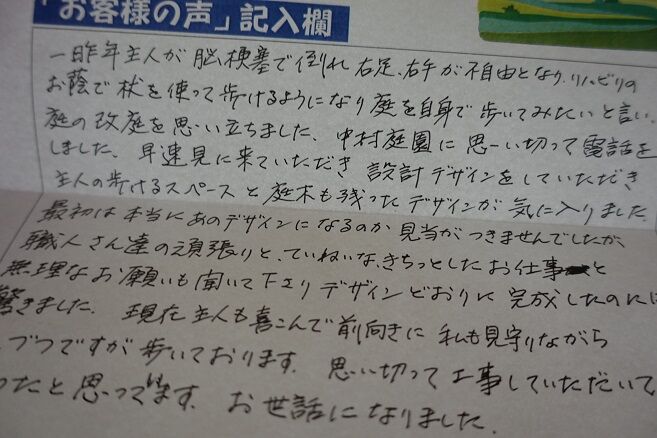 「お客様の声」記入欄
一昨年主人が脳梗塞で倒れ右足、右手が不自由となり、リハビリの
お蔭で杖を使って歩けるようになり庭を自身で歩いてみたいと言い、
庭の改庭を思い立ちました、中村庭園に思い切って電話を
しました、早速見に来ていただき設計デザインをしていただき
主人の歩けるスペースと庭木も残ったデザインが気に入りました
最初は本当にあのデザインになるのか見当がつきませんでしたが、
職人さん達の頑張りと、ていねいな、きちっとしたお仕事と
無理なお願いも聞いて下さりデザインどおりに完成したのには
驚きました、現在主人も喜こんで前向きに私も見守りながら
づつですが歩いております、思い切って工事していただいて
ったと思っています、お世話になりました、